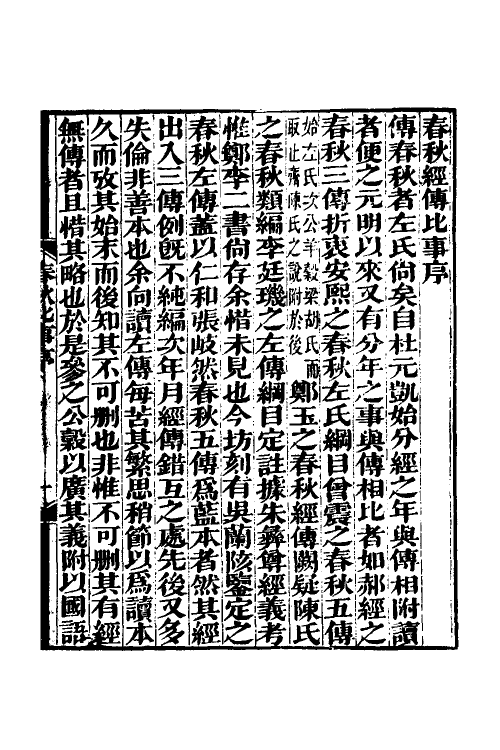 春秋經傳比事序
傳春秋者左氏尙矣自杜元凱始分經之年與傳相附讀
者便之元明以來又有分年之事與傳相比者如郝經之
春秋三傳折衷安熙之春秋左氏綱目曾震之春秋五傳
始左氏次公羊穀梁胡氏而
取止齋陳氏之說附於後
鄭玉之春秋經傳闕疑陳氏
之春秋類編李廷璣之左傳綱目定註據朱彝尊經義考
惟鄭李二書尙存余惜未見也今坊刻有吳蘭陔鑒定之
春秋左傳蓋以仁和張岐然春秋五傳爲藍本者然其經
出入三傳例旣不純編次年月經傳錯互之處先後又多
失倫非善本也余向讀左傳每苦其繁思稍節以爲讀本
久而攷其始末而後知其不可刪也非惟不可刪其有經
無傳者且惜其略也於是參之公穀以廣其義附以國語
春秋比事序
一